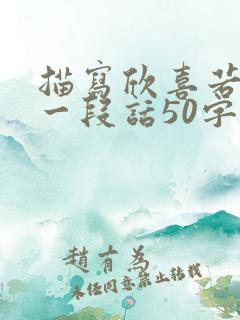 描寫欣喜若
一段話50字
趙有為
未經同意禁止轉載